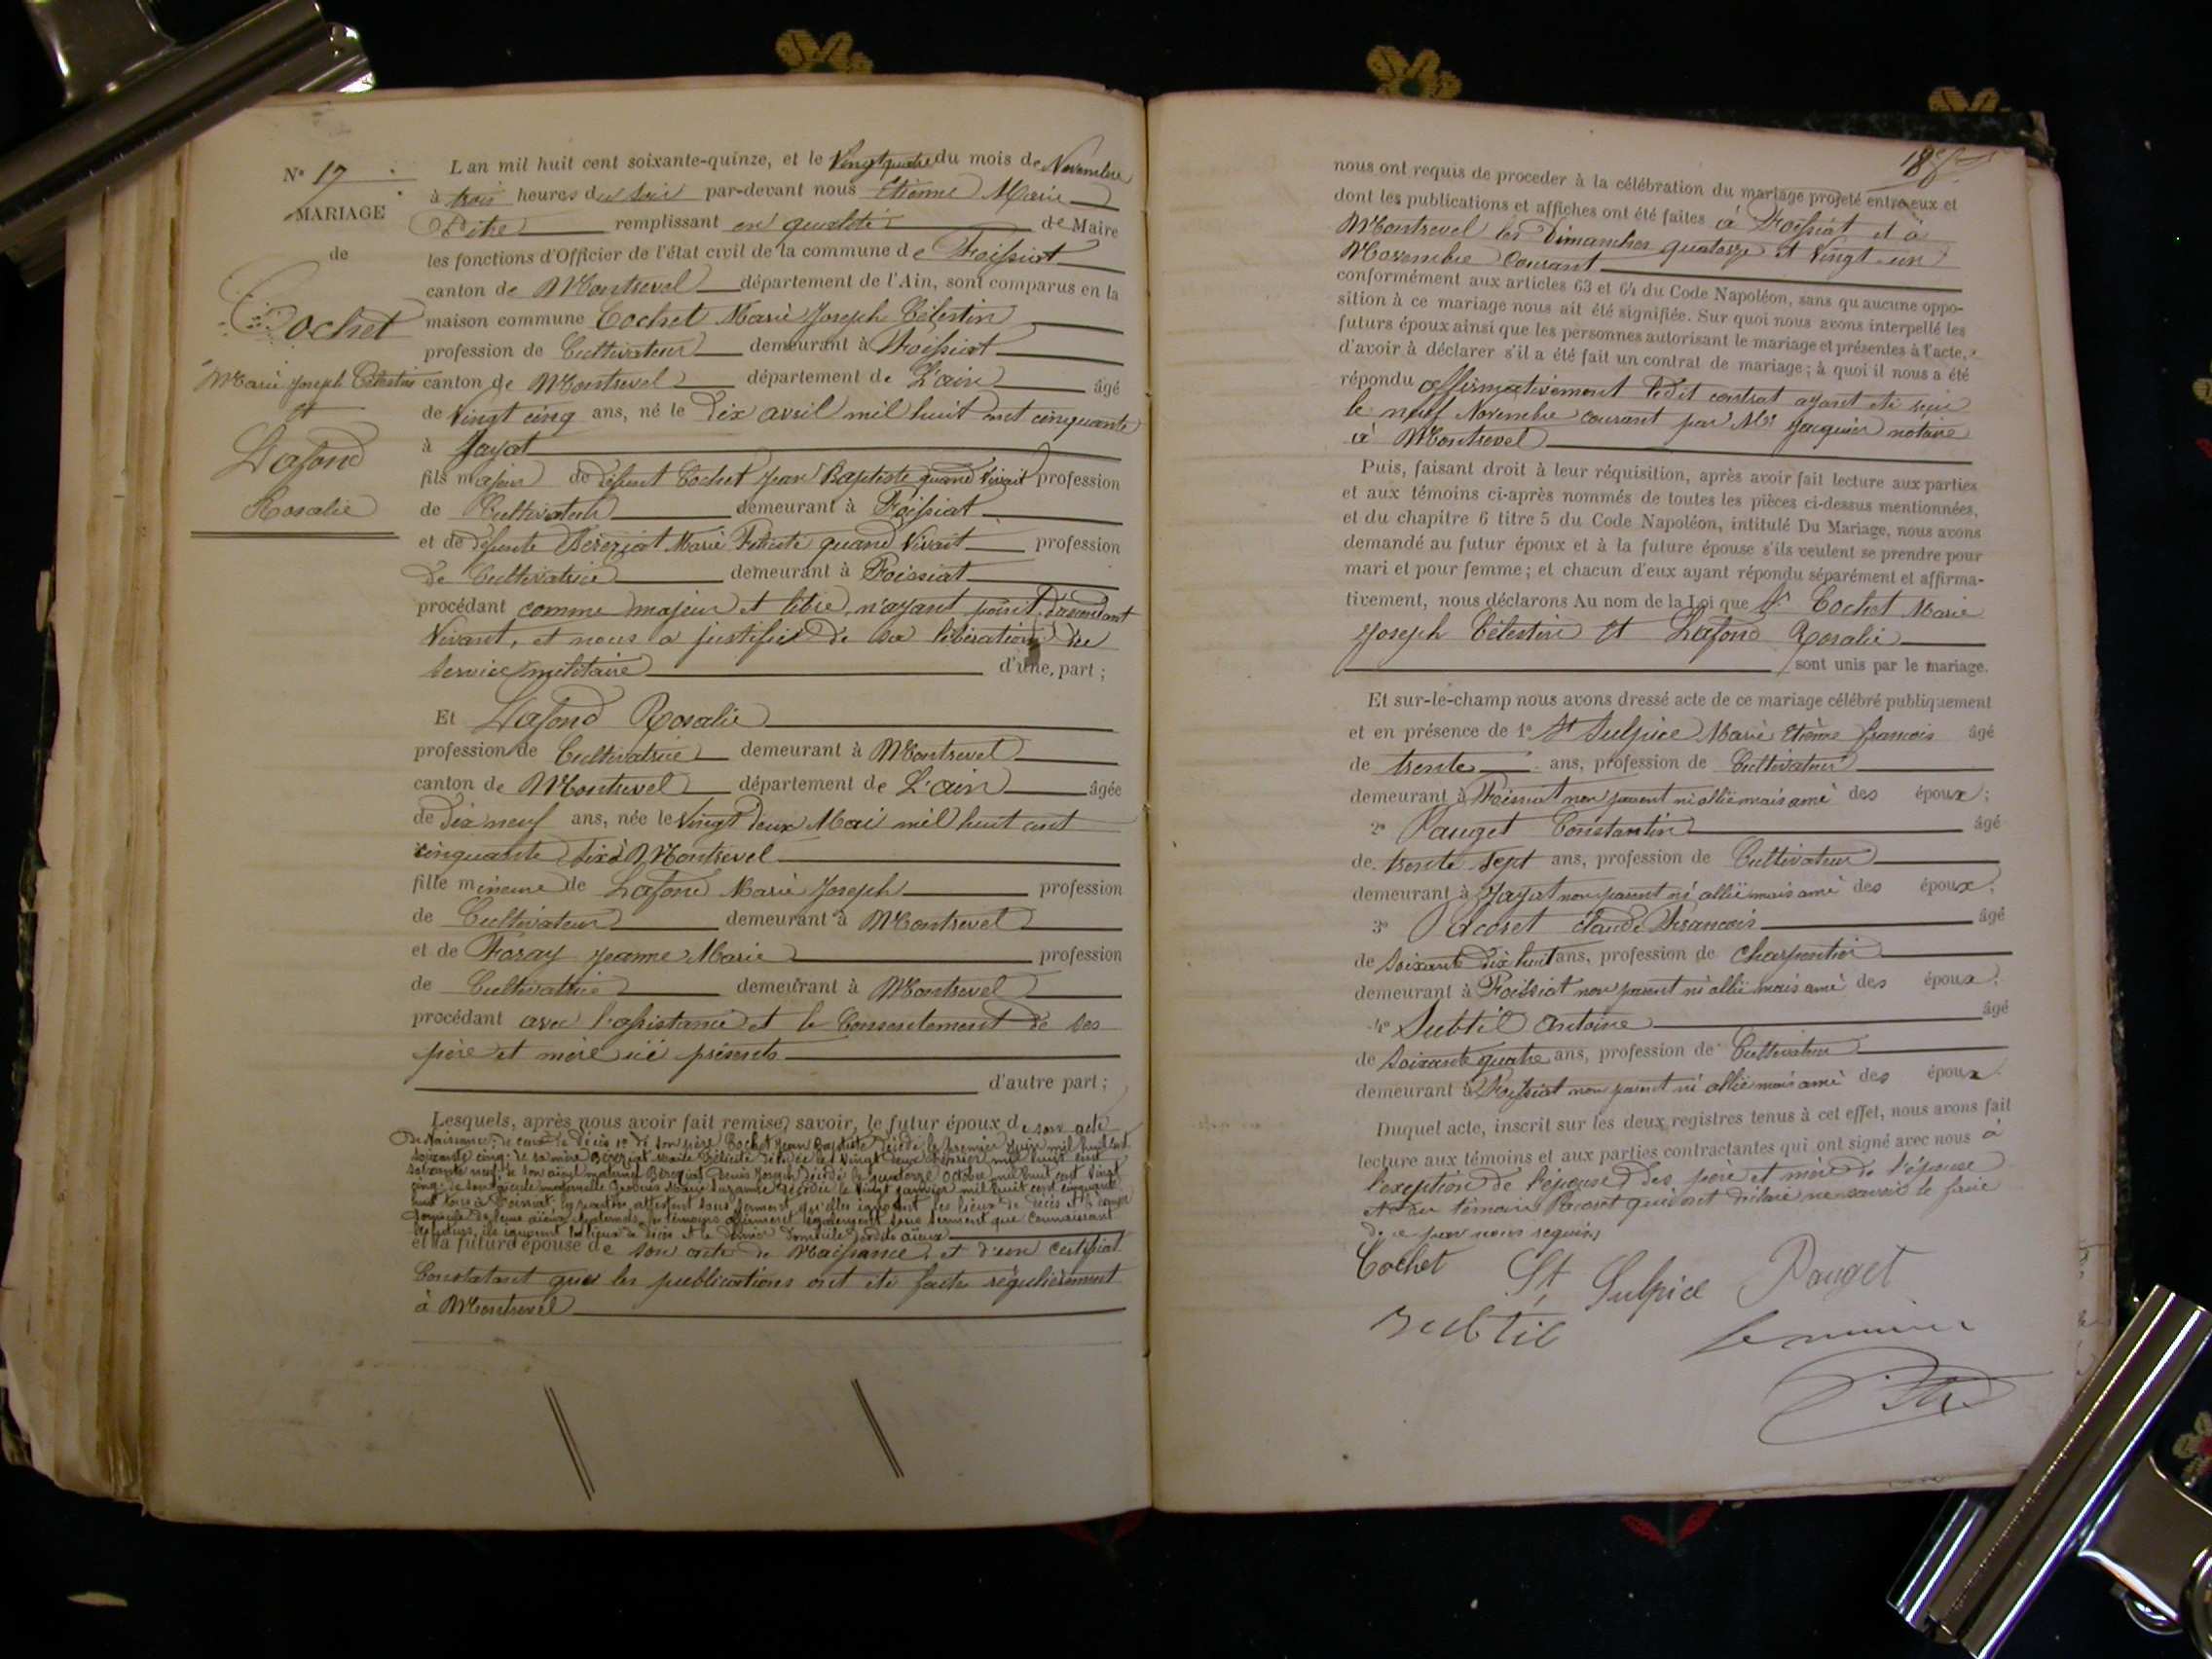 N° 17
MARIAGE
de
Cochet
Marie Joseph Célestin
et
Lafond
Rosalie
L'an mil huit cent soixante-quinze, et le Vingt quatre du mois de Novembre
à trois heures du soir par-devant nous Etienne Marie
Pitre remplissant en qualité de Maire
les fonctions d'Officier de l'état civil de la commune de Foissiat
canton de Montrevel département de l'Ain, sont comparus en la
maison commune Cochet Marie Joseph Célestin
profession de Cultivateur demeurant à Foissiat
canton de Montrevel département de L'ain âgé
de Vingt cinq ans, né le Dix avril mil huit cent cinquante
à Jayat
fils majeur de défunt Cochet Jean Baptiste quand vivait profession
de Cultivateur demeurant à Foissiat
et de défunte Bereziat Marie Félicité quand Vivait profession
de Cultivatrice demeurant à Foissiat
procédant comme majeur et libre, n'ayant point d'ascendant
Vivant, et nous a justifié de sa libération du
service militaire d'une part ;
Et Lafond Rosalie
profession de Cultivatrice demeurant à Montrevel
canton de Montrevel département de L'ain âgée
de Dix neuf ans, née le Vingt Deux Mai mil huit cent
cinquante six à Montrevel
fille mineure de Lafond Marie Joseph profession
de Cultivateur demeurant à Montrevel
et de Foray Jeanne Marie profession
de Cultivatrice demeurant à Montrevel
procédant avec l'assistance et le Consentement de ses
père et mère ici présents
d'autre part ;
Lesquels, après nous avoir fait remise, savoir, le futur époux de son acte
de Naissance, de ceux de décès 1° de son père Cochet Jean Baptiste décédé le premier Juin mil huit cent
soixante cinq, de sa mère Bereziat Marie Félicité décédée le Vingt deux Février mil huit cent
soixante neuf, de son aïeul maternel Bereziat Denis Joseph décédé le quatorze Octobre mil huit cent Vingt
cinq, de son aïeule maternelle Marie Suzanne décédée le Vingt Janvier mil huit cent cinquante
huit tous à Foissiat, les parties attestent sous serment qu'elles ignorent les lieux de décès et le dernier
domicile de leurs aïeux paternels, les témoins affirment également sous serment que connaissant
les futurs, ils ignorent les lieux de décès et le dernier domicile desdits aïeux
et la future épouse de son acte de Naissance, et d'un certificat
Constatant que les publications ont été faites régulièrement
à Montrevel
18
nous ont requis de proceder à la célébration du mariage projeté entre eux et
dont les publications et affiches ont été faites à Foissiat et à
Montrevel les Dimanches quatorze et Vingt un
Novembre Courant
conformément aux articles 63 et 64 du Code Napoléon, sans qu'aucune oppo-
sition à ce mariage nous ait été signifiée. Sur quoi nous avons interpellé les
futurs époux ainsi que les personnes autorisant le mariage et présentes à l'acte,
d'avoir à déclarer s'il a été fait un contrat de mariage ; à quoi il nous a été
répondu affirmativement ledit contrat ayant été reçu
le neuf Novembre courant par Me Jacquier notaire
à Montrevel
Puis, faisant droit à leur réquisition, après avoir fait lecture aux parties
et aux témoins ci-après nommés de toutes les pièces ci-dessus mentionnées,
et du chapitre 6 titre 5 du Code Napoléon, intitulé Du Mariage, nous avons
demandé au futur époux et à la future épouse s'ils veulent se prendre pour
mari et pour femme ; et chacun d'eux ayant répondu séparément et affirma-
tivement, nous déclarons Au nom de la Loi que Sr Cochet Marie
Joseph Célestin et Lafond Rosalie
sont unis par le mariage.
Et sur-le-champ nous avons dressé acte de ce mariage célébré publiquement
et en présence de 1° St Sulpice Marie Etiènne francois âgé
de trente ans, profession de Cultivateur
demeurant à Foissiat non parent ni allié mais ami des époux ;
2° Pauget Constantin âgé
de trente sept ans, profession de Cultivateur
demeurant à Jayat non parent ni allié mais ami des époux ;
3° Pacoret Claude Francois âgé
de soixante dix huit ans, profession de Charpentier
demeurant à Foissiat non parent ni allié mais ami des époux ;
4° Subtil Antoine âgé
de soixante quatre ans, profession de Cultivateur
demeurant à Foissiat non parent ni allié mais ami des époux.
Duquel acte, inscrit sur les deux registres tenus à cet effet, nous avons fait
lecture aux témoins et aux parties contractantes qui ont signé avec nous à
l'exeption de l'épouse, des père et mère de l'épouse
et du témoin Pacoret qui ont déclaré ne savoir le faire
de ce par nous requis
Cochet St Sulpice Pauget
Subtil Le maire
Pitre